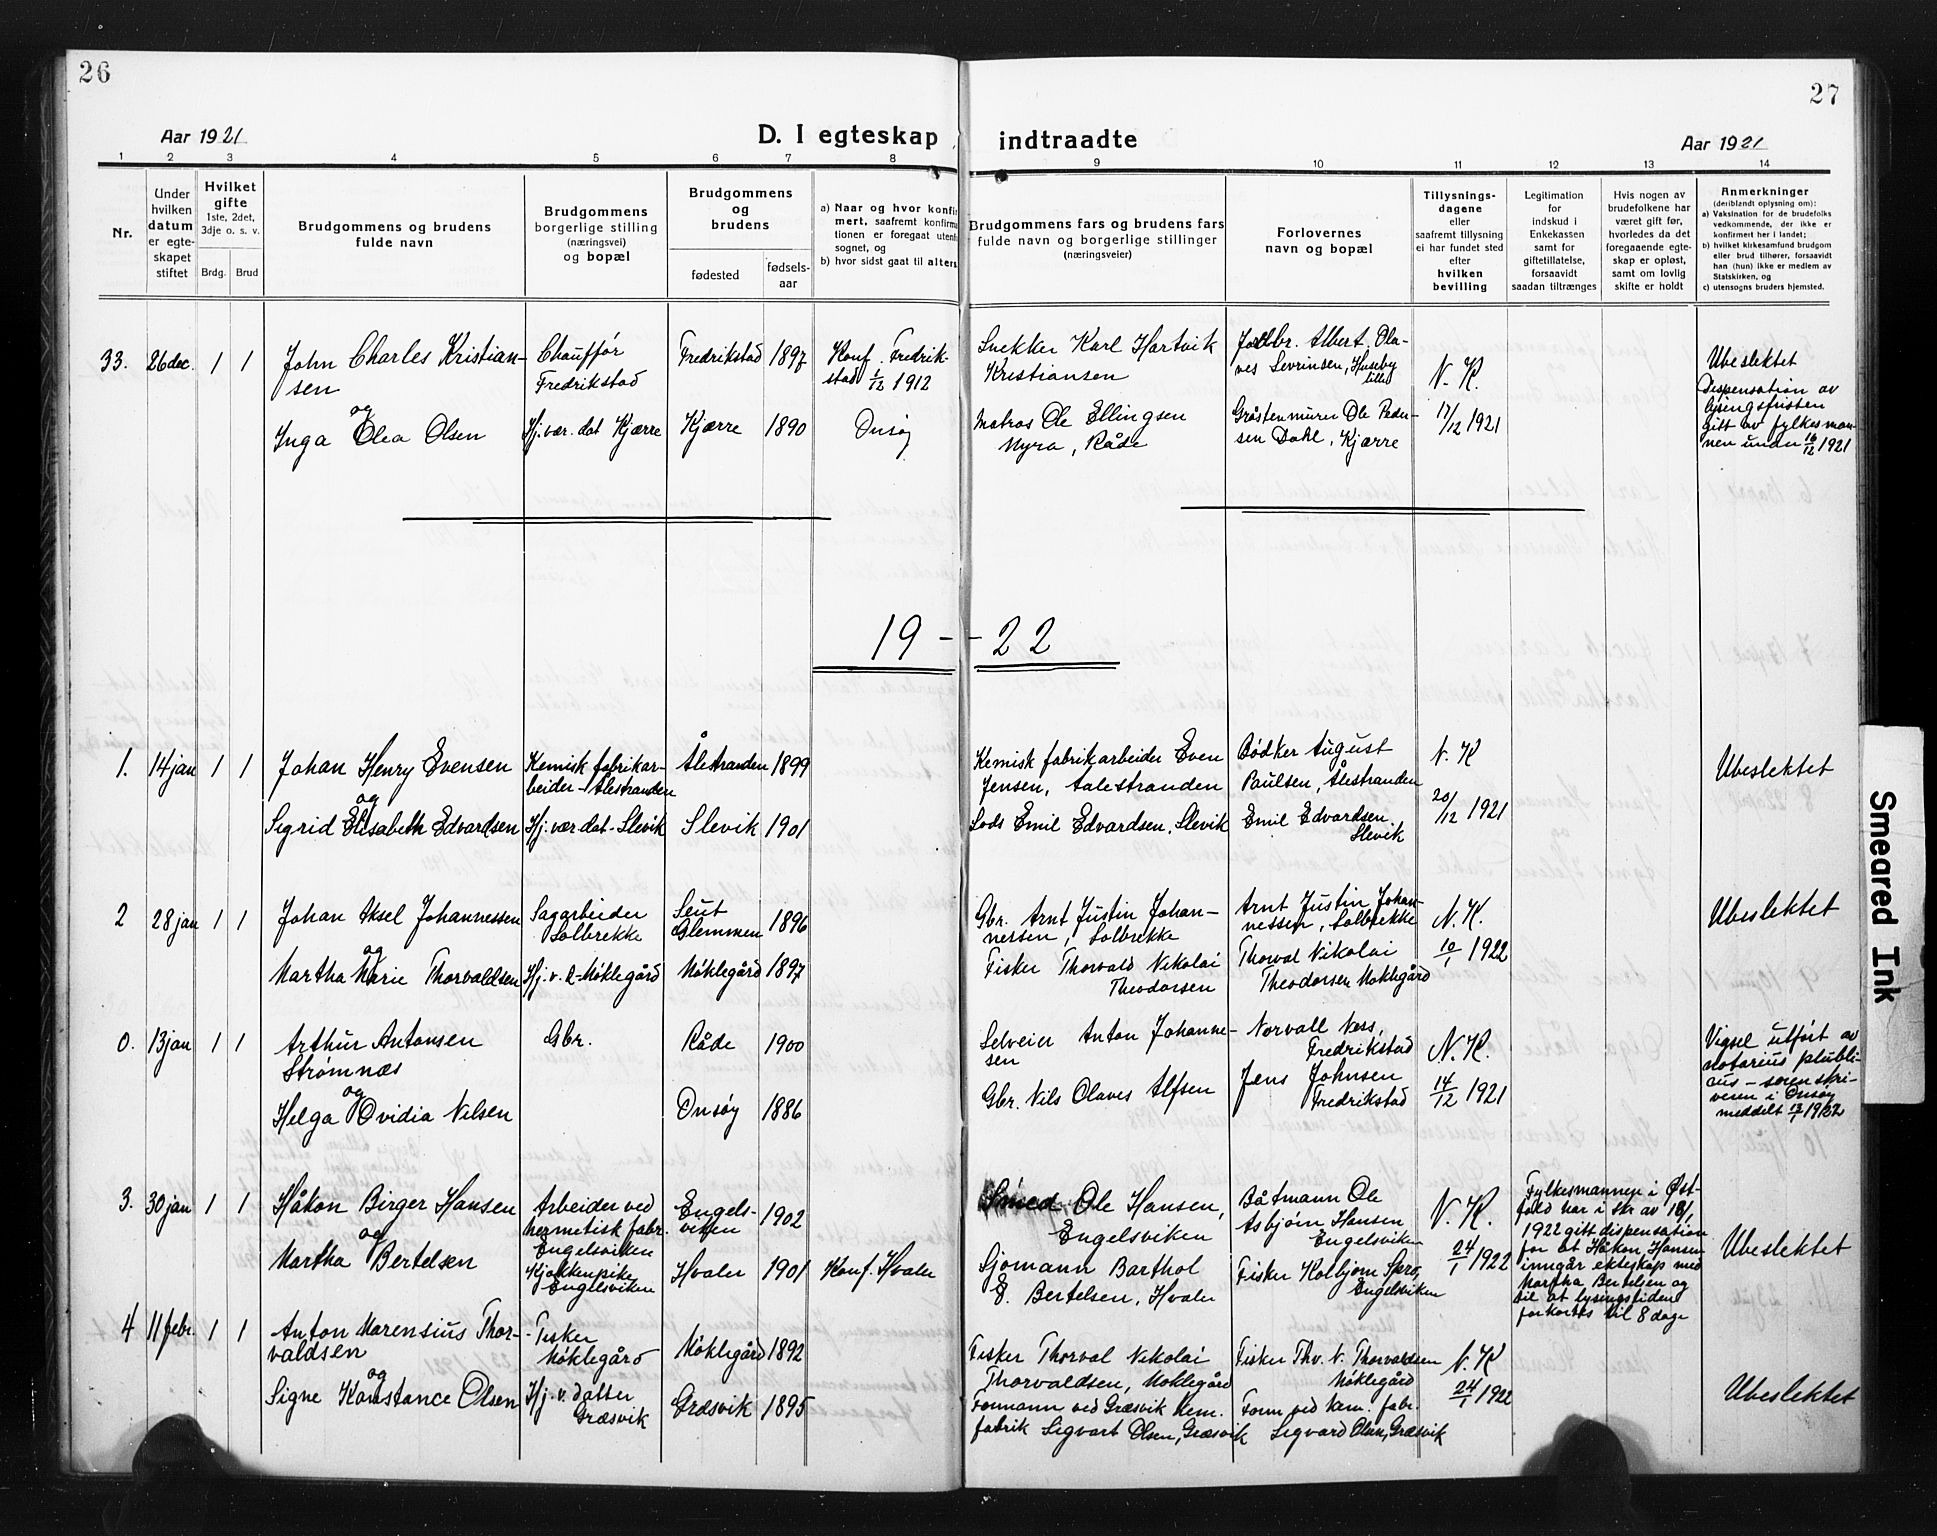 26
27
Aar 1921
D. I egteskap indtraadte
Aar 1921
1 2 3 4 5 6 7 8 9 10 11 12 13 14
Nr.
Under hvilken datum er egte-skapet stiftet
Hvilket gifte
1ste, 2det, 3dje o. s. v.
Brdg. Brud
Brudgommens og brudens fulde navn
Brudgommens borgerlige stilling (næringsvei) og bopæl
Brudgommens og brudens
fødested
fødsels-aar
a) Naar og hvor konfir
mert, saafremt konfirma
tionen er foregaat utenf
sognet, og
b) hvor sidst gaat til alters
Brudgommens fars og brudens fars
fulde navn og borgerlige stillinger
(næringsveier)
Forlovernes
navn og bopæl
Tillysnings-
dagene
eller
saafremt tillysning
ei har fundet sted
efter
hvilken
bevilling
Legitimation
for
indskud i
Enkekassen
samt for
giftetillatelse,
forsaavidt
saadan tiltrænges
Hvis nogen av
brudefolkene har
været gift før,
hvorledes da det
foregaaende egte-
skap er opløst,
samt om lovlig
skifte er holdt
Anmerkninger
(deriblandt oplysning om):
a) Vaksination for de brudefolks
vedkommende, der ikke er
konfirmert her i landet;
b) hvilket kirkesamfund brudgom
eller brud tilhører, forsaavidt
han (hun) ikke er medlem av
Statskirken, og
c) utensogns bruders hjemsted.
33. 26 dec. 1 1
John Charles Kristian-
sen
og
Inga Olea Olsen
Chauffør
Fredrikstad
Hj. vær. dat Kjærre
Fredrikstad 1897
Kjærre 1890
Konf. Fredrik-
stad 1/12 1912
Onsøy
Snekker Karl Hartvik
Kristiansen
Matros Ole Ellingsen
Myra, Råde
Albert Ola-
ves Sevrinsen, Huseby
Gråstenmurer Ole Peder-
sen Dahl, Kjærre
N. K.
17/12 1921
Ubeslektet
Dispensation av
lysingsfristen
gitt av fylkesman-
nen under 16/12 1921
19 - - 22
1. 14 jan 1 1
Johan Henry Evensen
og
Sigrid Elisabeth Edvardsen
Kemisk fabrikar-
beider - Ålestranden
Hj. vær. dat - Slevik
Ålestranden 1899
Slevik 1901
Kemisk fabrikarbeider Even
Jensen, Aalestranden
Lods Emil Edvardsen, Slevik
Bødker August
Paulsen, Ålestranden
Emil Edvardsen
Slevik
N. K
20/12 1921
Ubeslektet
2 28 jan 1 1
Johan Aksel Johannessen
og
Martha Marie Thorvaldsen
Sagarbeider
Solbrekke
Hj. v. d - Møklegård
Seut
Glemmen 1896
Møklegård 1897
Gbr. Arnt Justin Johan-
nessen, Solbrekke
Fisker Thorvald Nikolai
Theodorsen
Arnt Justin Johan-
nessen, Solbrekke
Thorval Nikolai
Theodorsen Moklegård
N. K.
10/1 1922
Ubeslektet
0. 13 jan 1 1
Arthur Antonsen
Strømnæs
og
Helga Ovidia Nilsen
Gbr.
Råde 1900
Onsøy 1886
Selveier Anton Johanne-
sen
Gbr. Nils Olaves Alfsen
Norvall Næss,
Fredrikstad
Jens Johnsen
Fredrikstad
N. K.
14/12 1921
Vigsel utført av
notarius plubli-
cus - sorenskri-
veren i Onsøy
meddelt 13/1 1922
3. 30 jan 1 1
Håkon Birger Hansen
og
Martha Bertelsen
Arbeider ved
hermetisk fabr.
Engelsviken
Kjøkkenpike
Engelsviken
Engels-
viken 1902
Hvaler 1901
Konf. Hvaler
Smed Ole Hansen,
Engelsviken
Sjømann Barthol
E. Bertelsen, Hvaler
Båtmann Ole
Asbjørn Hansen
Engelsviken
Fisker Kolbjørn
Engelsviken
N. K.
24/1 1922
Fylkesmannen i Øst-
fold har i skr av 18/1
1922 gitt dispensation
for at Håkon Hansen
inngår ekteskap med
Martha Bertelsen og
til at lysingstiden
forkortes til 8 dage
Ubeslektet
4 11 febr. 1 1
Anton Marensius Thor-
valdsen
og
Signe Konstance Olsen
Fisker
Møklegård
Hj. v. datter
Græsvik
Møklegård 1892
Græsvik 1895
Fisker Thorval Nikolai
Thorvaldsen, Moklegård
Formann ved Græsvik kem.
fabrik Sigvart Olsen, Græsvik
Fisker Thv. N. Thorvaldsen
Møklegård
Form ved kem. fabr.
Sigvard Olsen, Græsvik
N. K
24/1 1922
Ubeslektet
Smeared Ink